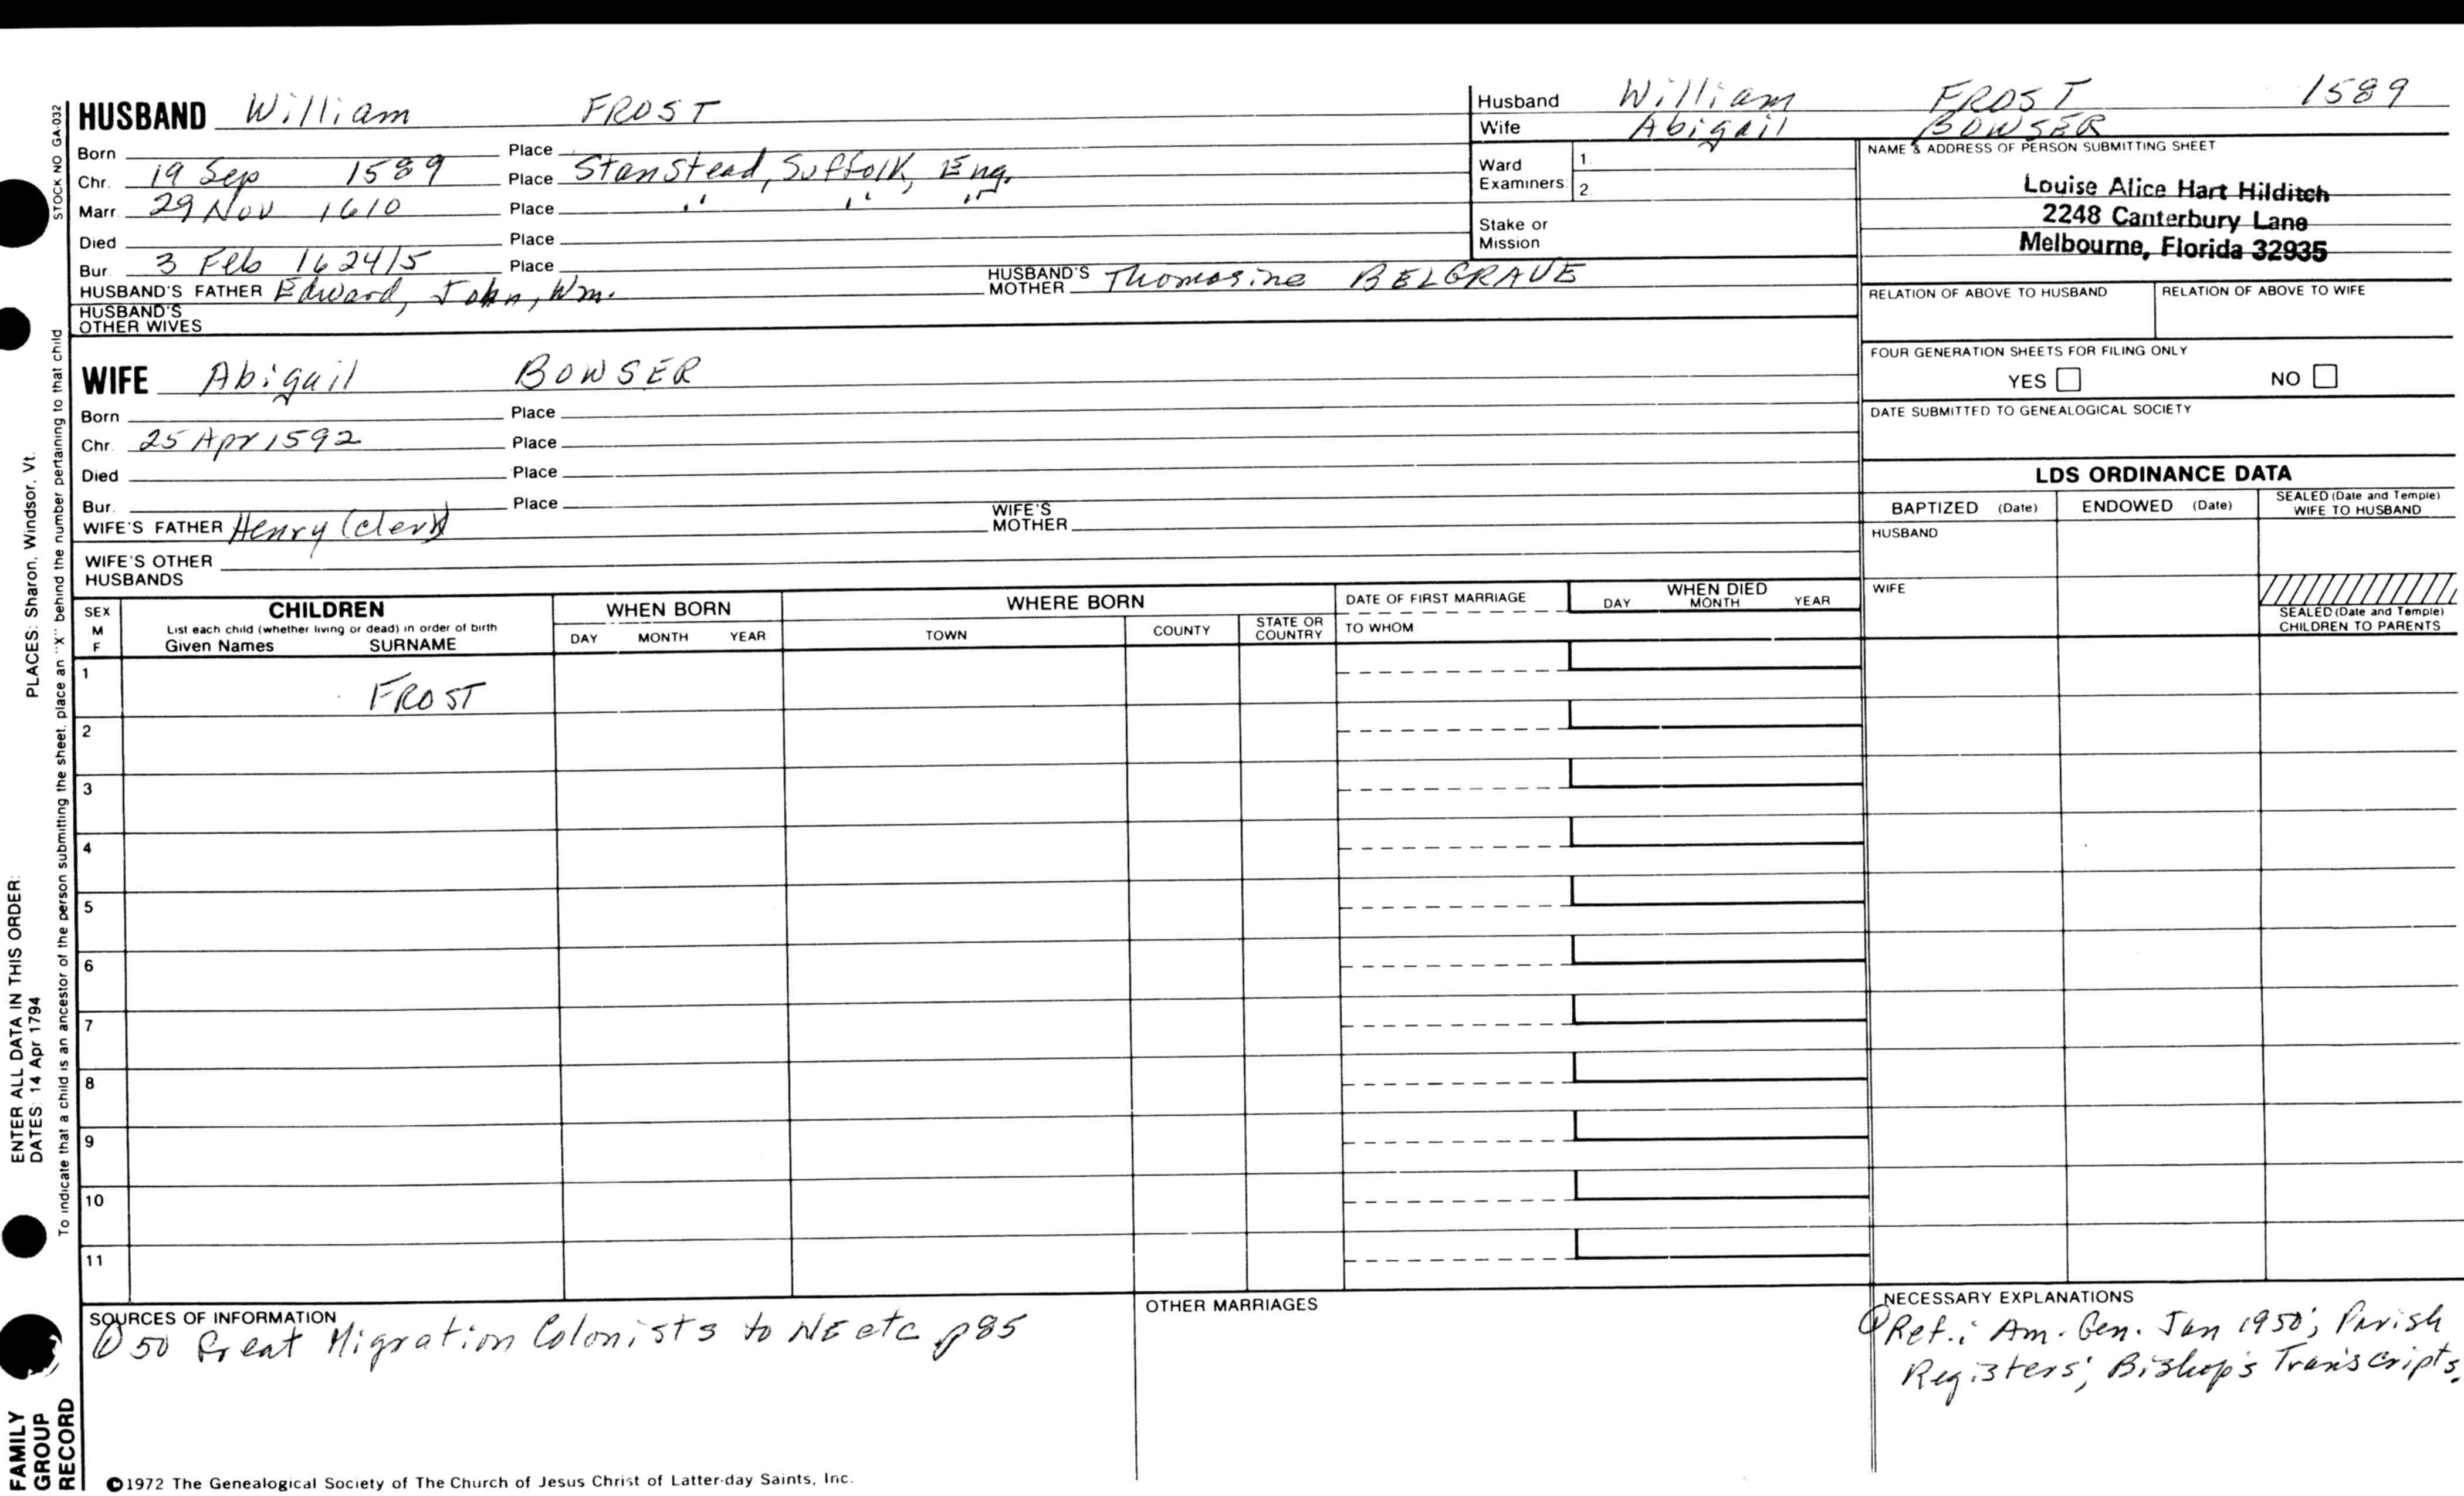 HUSBAND William FROST
Born Place
Chr. 19 Sep 1589 Place Stanstead, Suffolk, Eng.
Marr. 29 Nov 1610 Place " " "
Died Place
Bur. 3 Feb 1624/5 Place
HUSBAND'S FATHER Edward, John, Wm. HUSBAND'S MOTHER Thomasine BELGRAVE
HUSBAND'S OTHER WIVES
WIFE Abigail BOWSER
Born Place
Chr. 25 Apr 1592 Place
Died Place
Bur. Place
WIFE'S FATHER Henry (clerk) WIFE'S MOTHER
WIFE'S OTHER HUSBANDS
Husband William FROST 1589
Wife Abigail BOWSER
Ward Examiners: 1. 2.
Stake or Mission
NAME & ADDRESS OF PERSON SUBMITTING SHEET
Louise Alice Hart Hilditch
2248 Canterbury Lane
Melbourne, Florida 32935
RELATION OF ABOVE TO HUSBAND RELATION OF ABOVE TO WIFE
FOUR GENERATION SHEETS FOR FILING ONLY
YES NO
DATE SUBMITTED TO GENEALOGICAL SOCIETY
LDS ORDINANCE DATA
BAPTIZED (Date) ENDOWED (Date) SEALED (Date and Temple) WIFE TO HUSBAND
HUSBAND
WIFE
SEALED (Date and Temple) CHILDREN TO PARENTS
SEX M F
CHILDREN
List each child (whether living or dead) in order of birth
Given Names SURNAME
WHEN BORN
DAY MONTH YEAR
WHERE BORN
TOWN COUNTY STATE OR COUNTRY
DATE OF FIRST MARRIAGE
TO WHOM
WHEN DIED
DAY MONTH YEAR
1 FROST
2
3
4
5
6
7
8
9
10
11
SOURCES OF INFORMATION
① 50 Great Migration Colonists to NE etc p85
OTHER MARRIAGES
NECESSARY EXPLANATIONS
① Ref.: Am. Gen. Jan 1950; Parish
Registers; Bishop's Transcripts.
©1972 The Genealogical Society of The Church of Jesus Christ of Latter-day Saints, Inc.
STOCK NO GA-032
To indicate that a child is an ancestor of the person submitting the sheet, place an "X" behind the number pertaining to that child
ENTER ALL DATA IN THIS ORDER:
DATES: 14 Apr 1794
PLACES: Sharon, Windsor, Vt.
FAMILY
GROUP
RECORD